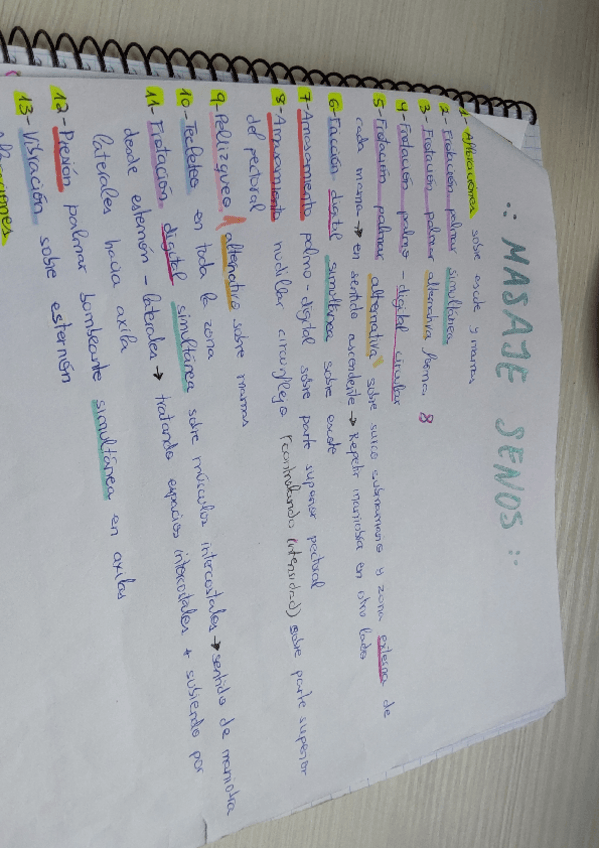 ∴ MASAJE SENOS ∵
1- Afloraciones sobre escote y mamas
2- Frotación palmar simultánea
3- Frotación palmar alternativa forma 8
4- Frotación palmo-digital circular
5- Frotación palmar alternativa sobre surco submamario y zona externa de
cada mama → en sentido ascendente → Repetir maniobra en otro lado
6- Fricción digital simultánea sobre escote
7- Amasamiento palmo-digital sobre parte superior pectoral
8- nudillar (controlando intensidad) sobre parte superior
del pectoral
9- Pellizqueo alternativo sobre mamas
10- Tecleteo en toda la zona
11- Frotación digital simultánea sobre músculos intercostales → sentido de maniobra
desde esternón - laterales → tratando espacios intercostales + subiendo por
laterales hacia axila
12- Presión palmar bombeante simultánea en axilas
13- Vibración sobre esternón